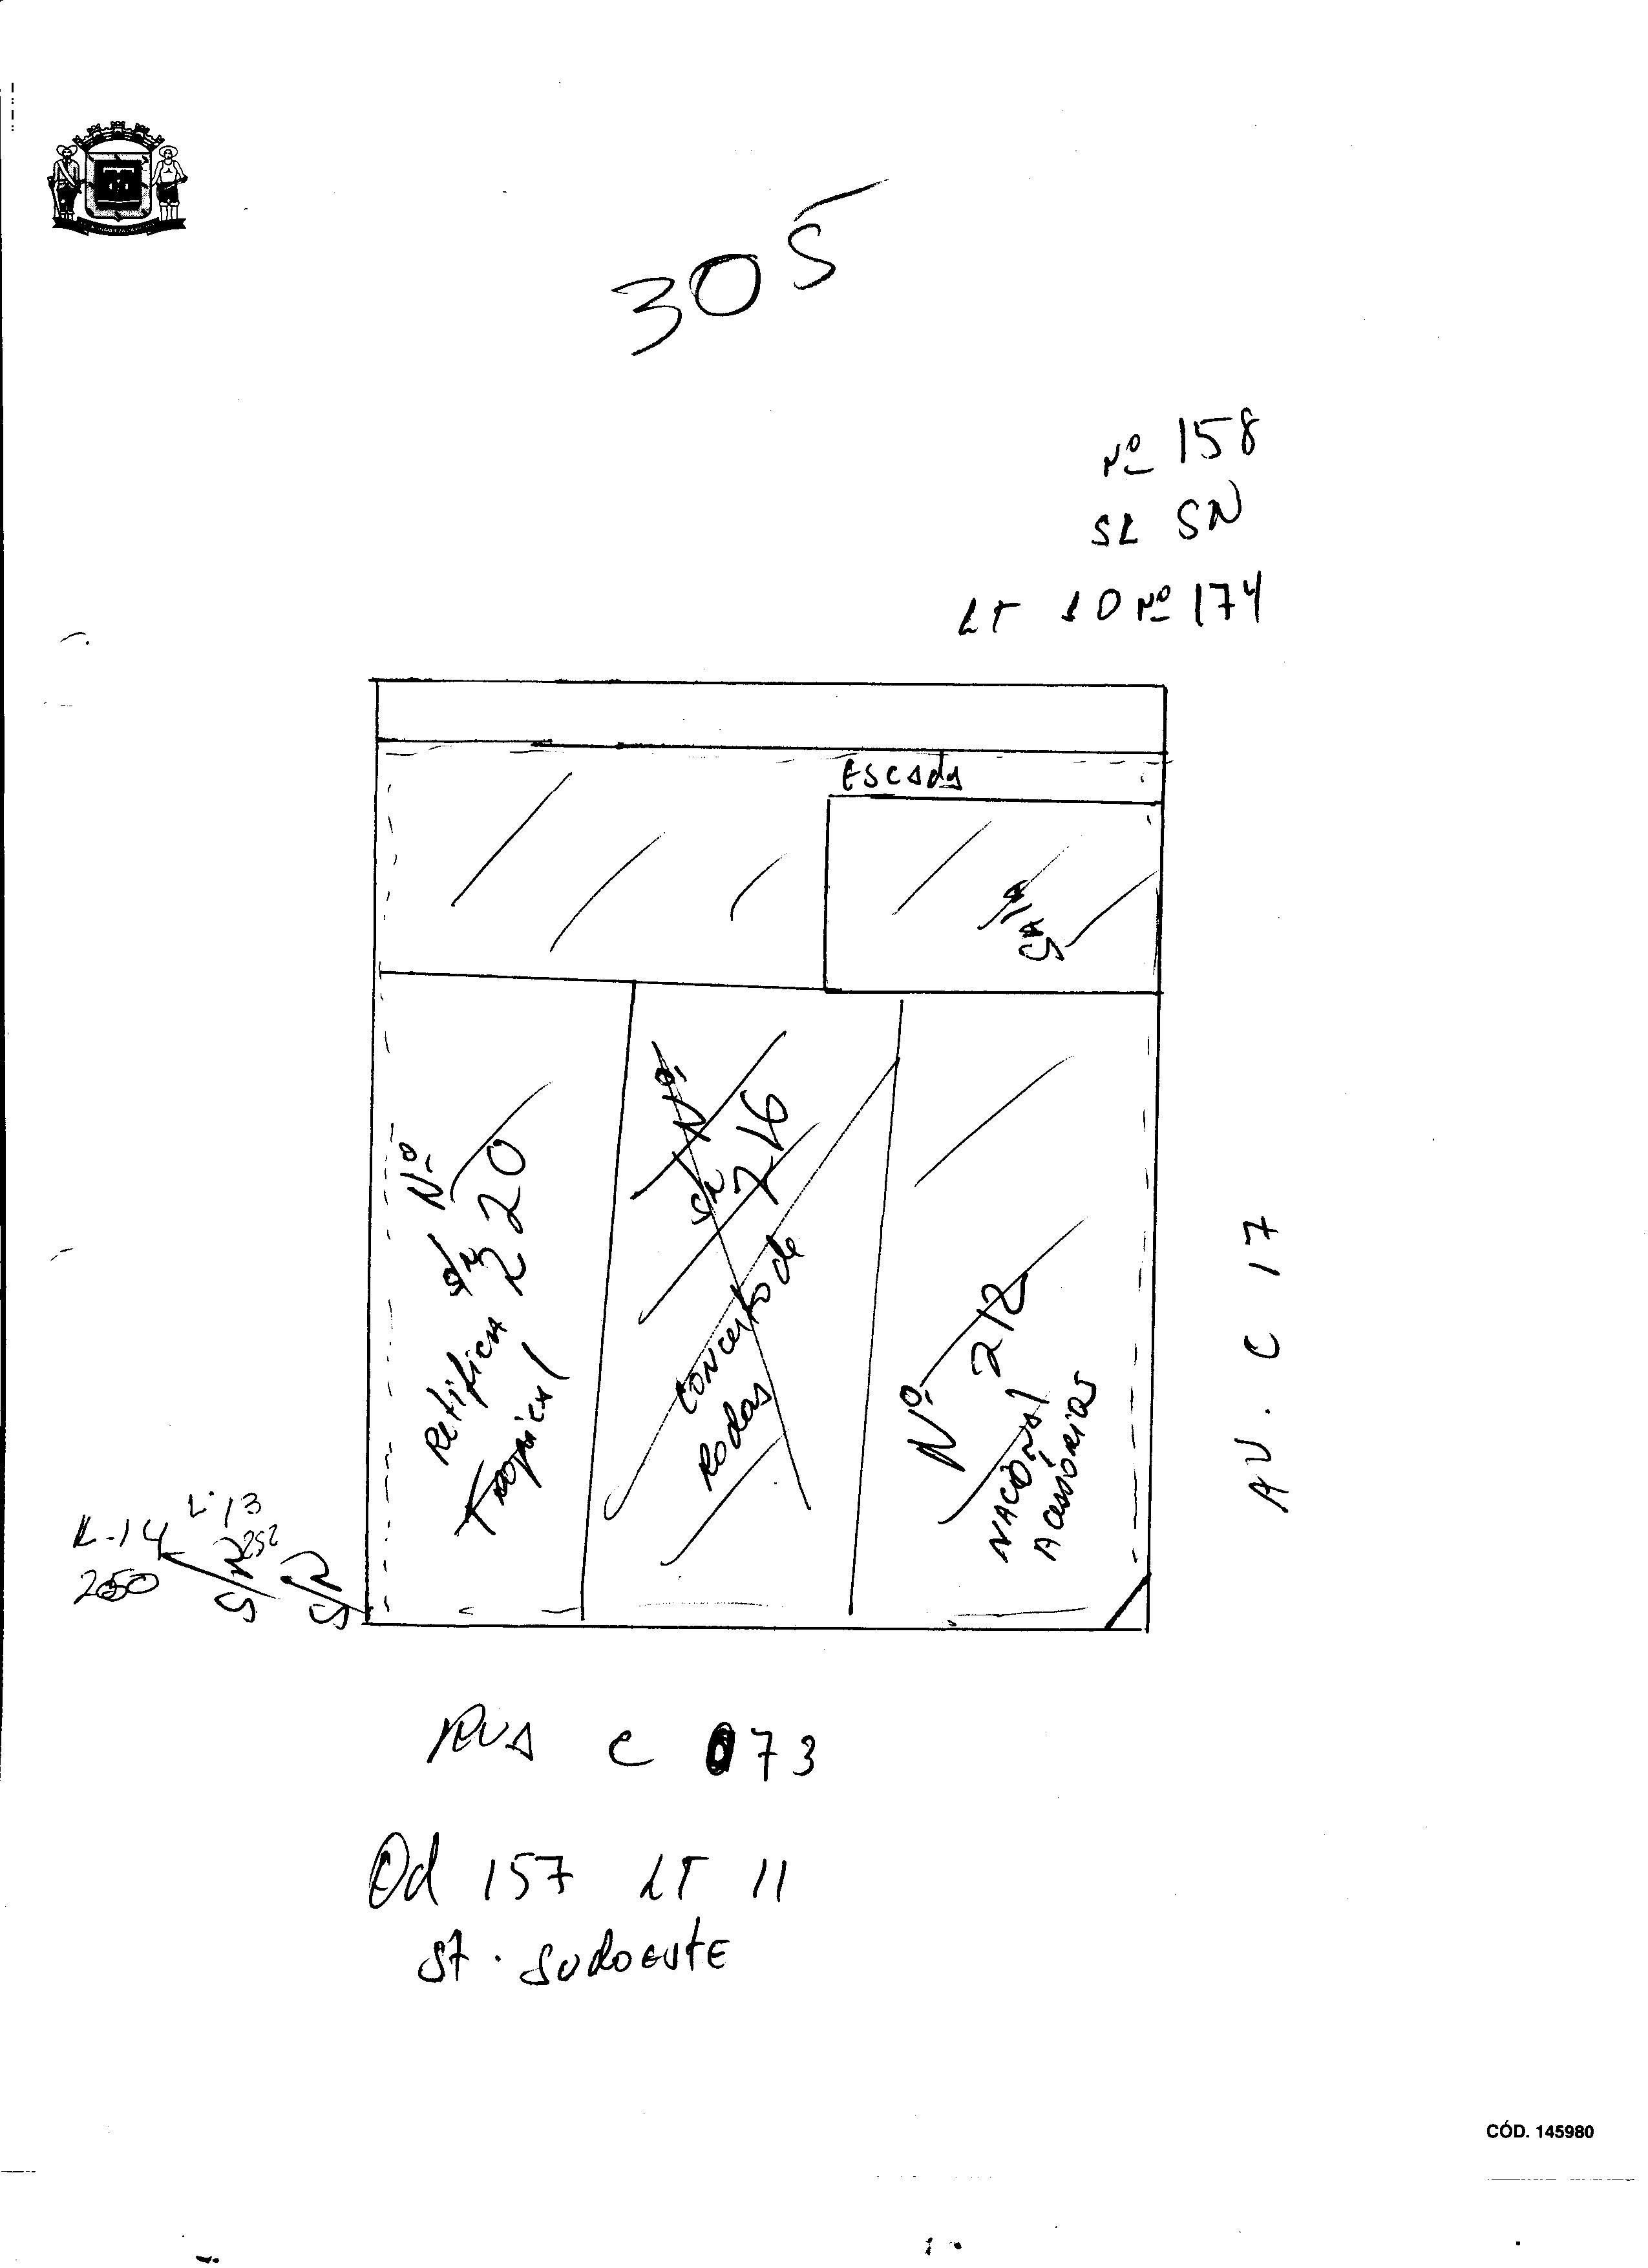 305
Nº 158
SL SN
LT 10 Nº 174
Escada
S/N
Nº
220
Retifica
Tropical
Nº
216
Concerto de
Rodas
Nº 212
NACIONAL
Acessórios
AV. C 17
L-13
252
L-14
250
SN
SN
RUA C 73
Qd 157 LT 11
St. Sudoeste
CÓD. 145980